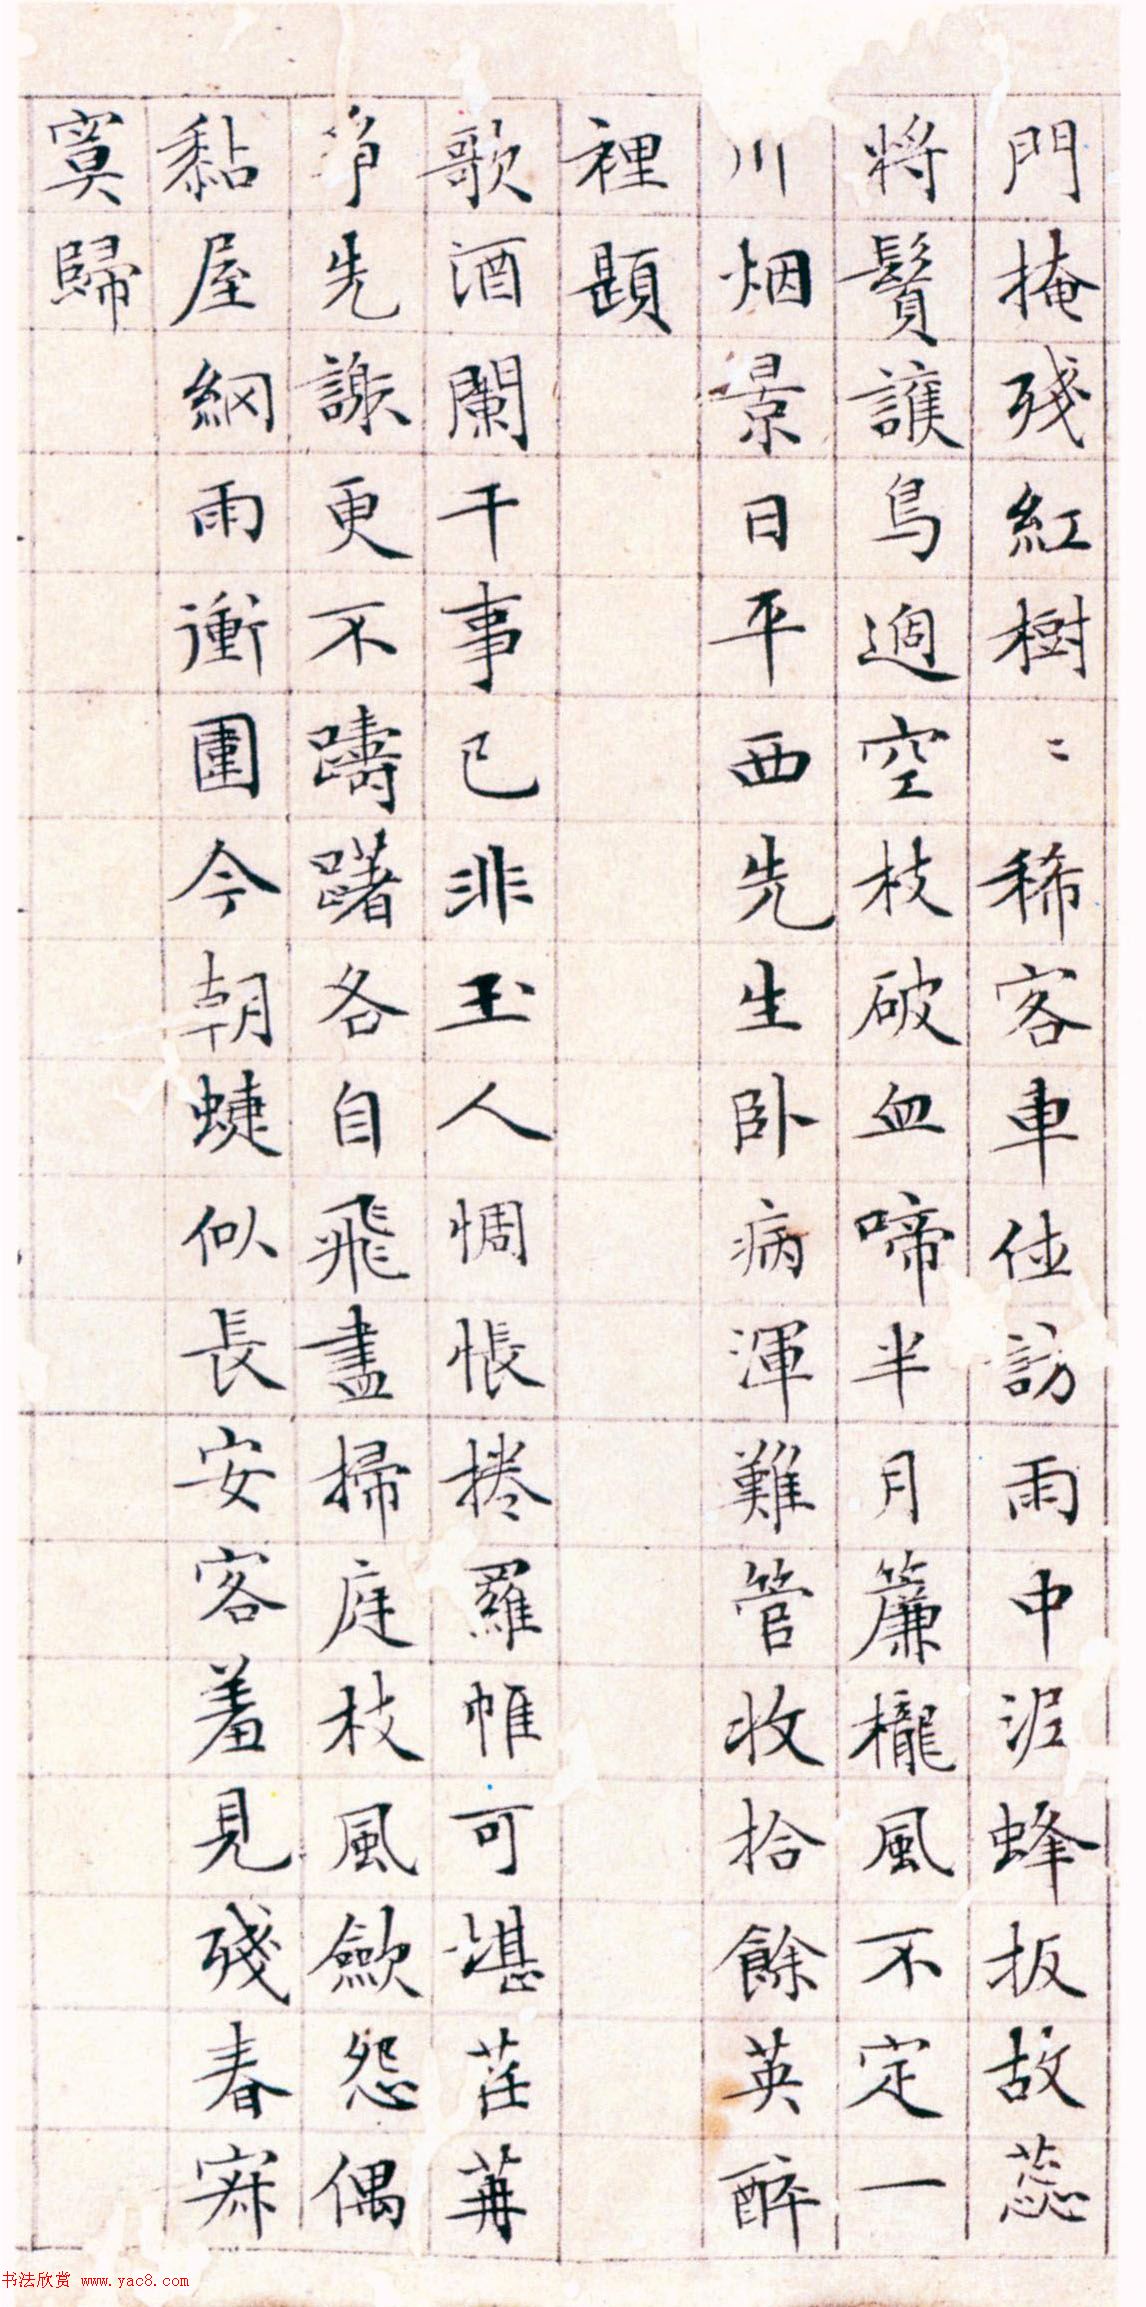 門掩殘紅樹〻稀客車位訪雨中泥蜂扳故蕊
將鬚護鳥過空枝破血啼半月簾櫳風不定一
川烟景日平西先生卧病渾難管收拾餘英醉
裡題
歌酒闌干事已非玉人惆悵捲羅帷可堪茌苒
爭先謝更不躊躇各自飛盡掃庭枝風歛怨偶
黏屋網雨衝圍今朝蜨似長安客羞見殘春寂
寞歸
书法欣赏 www.yac8.com